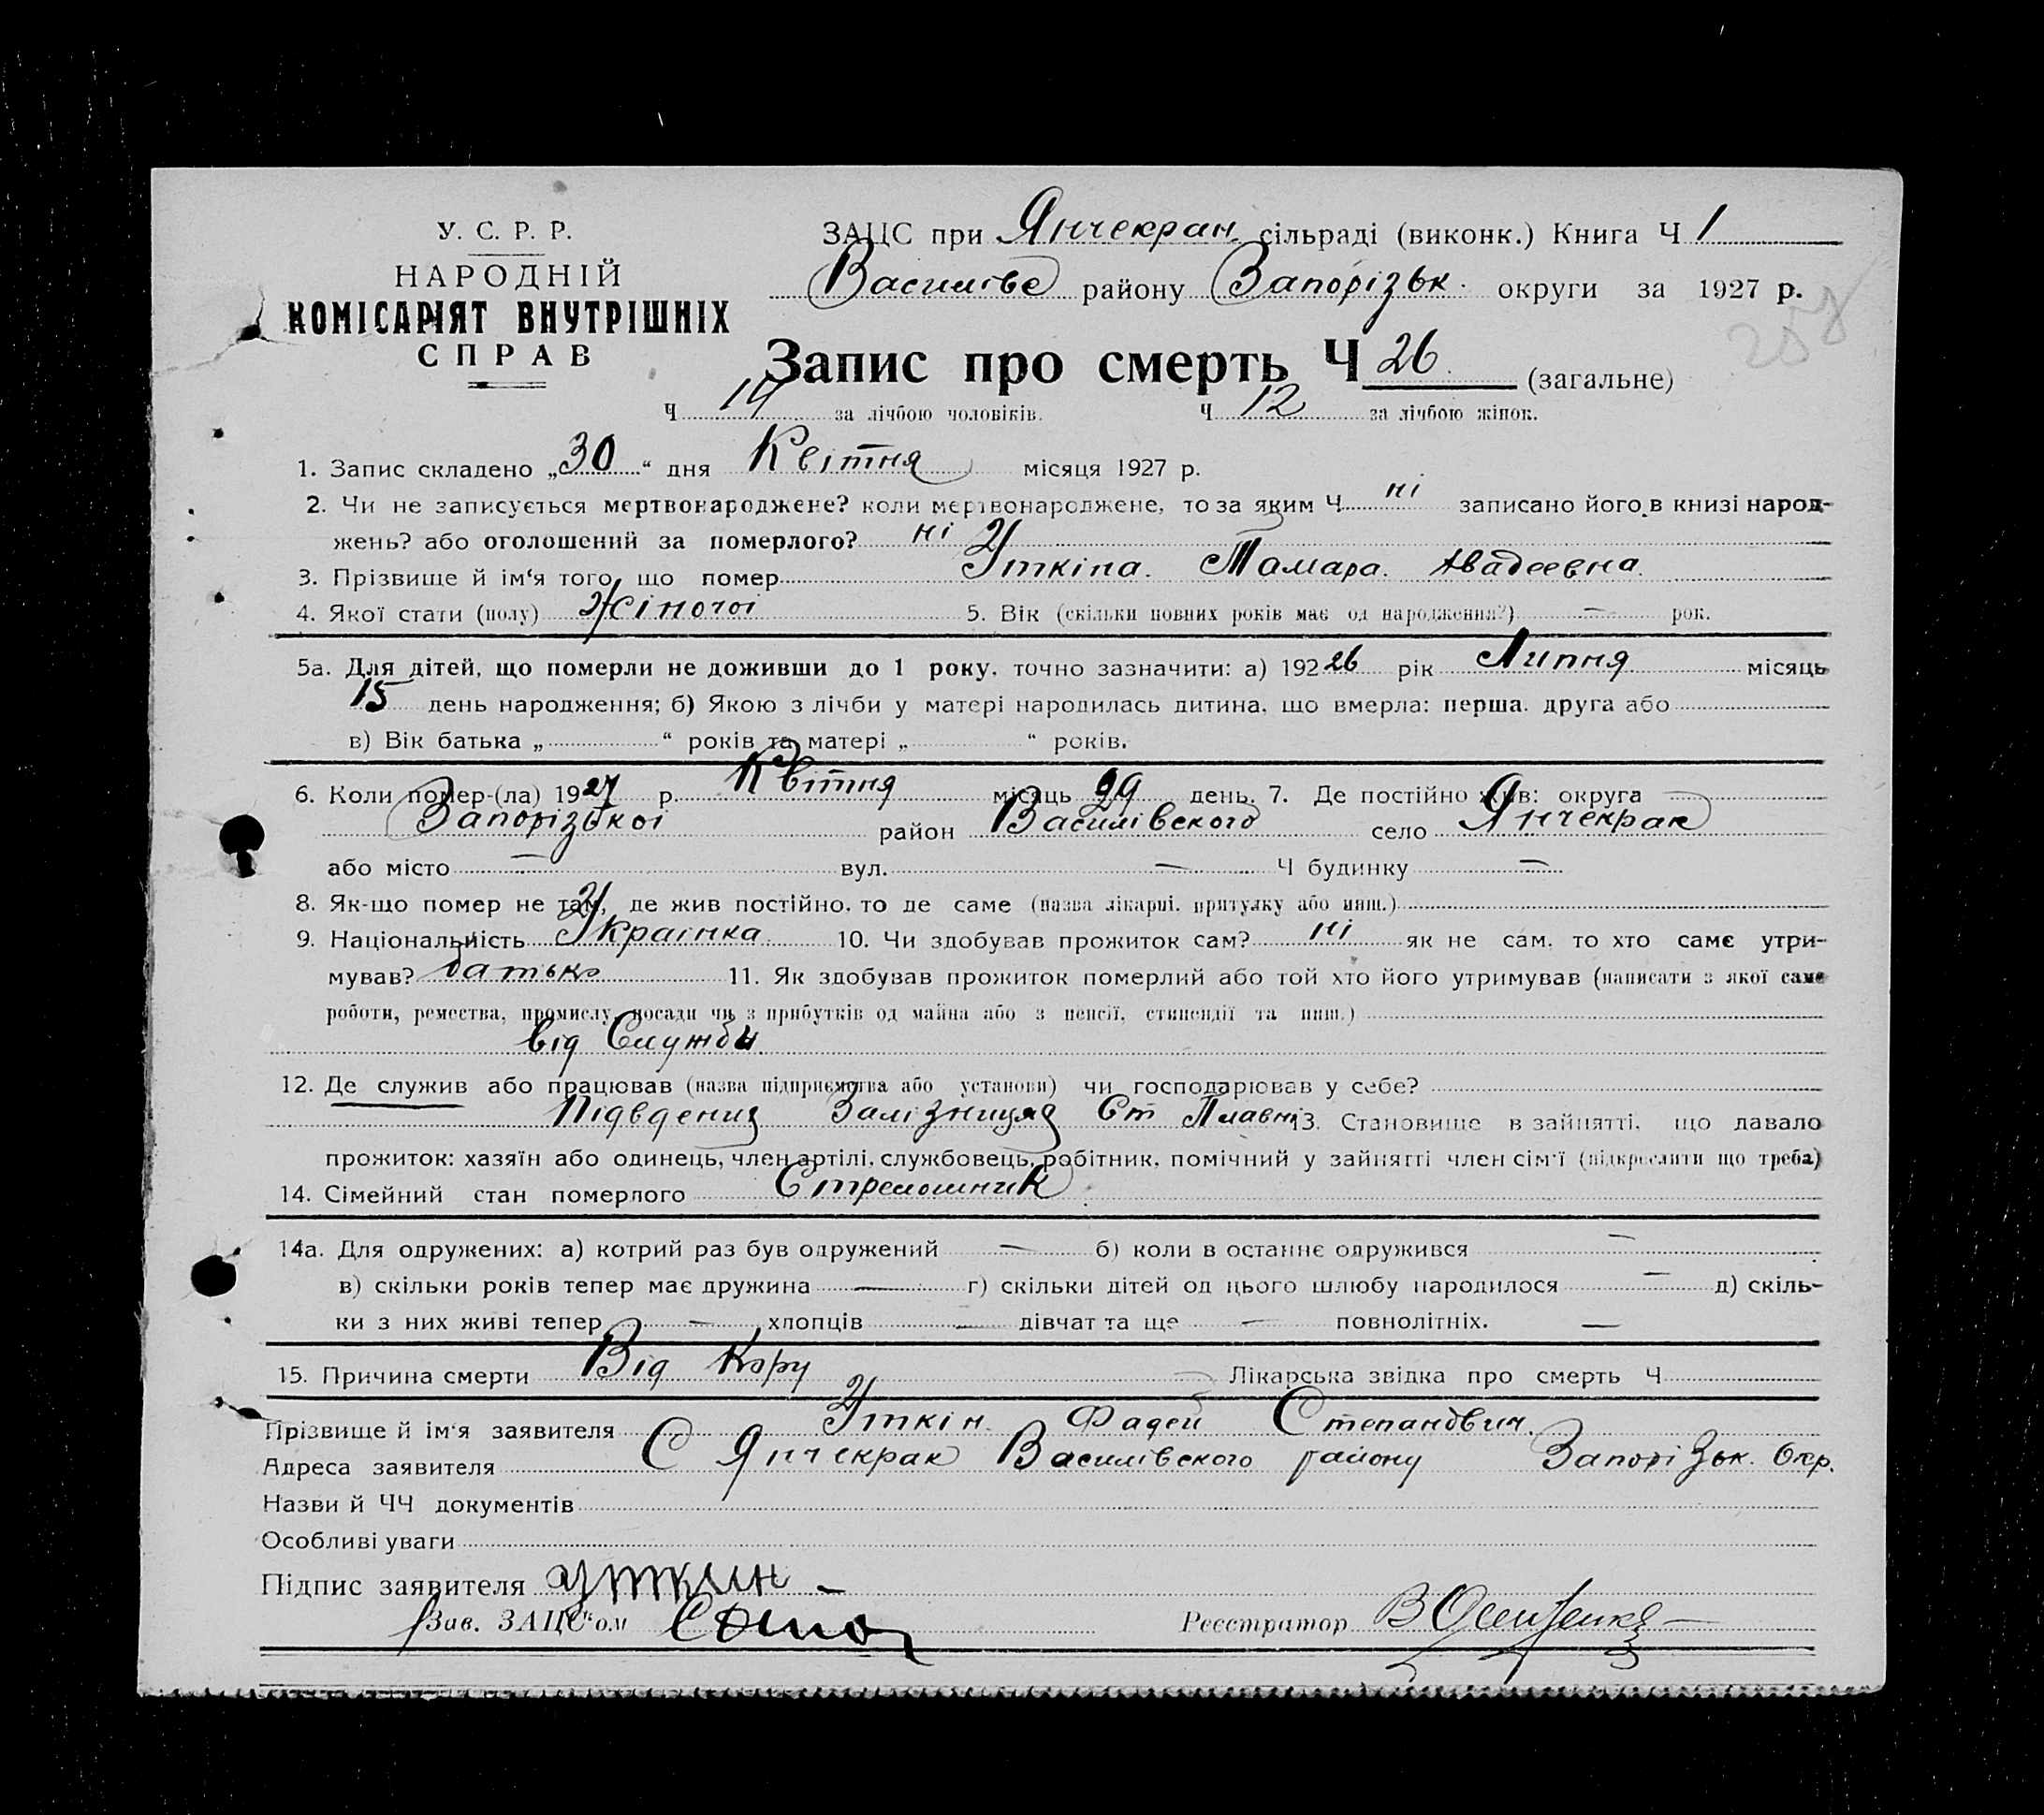 У. С. Р. Р.
НАРОДНІЙ
КОМІСАРІЯТ ВНУТРІШНІХ
СПРАВ
ЗАЦС при Янчекран. сільраді (виконк.) Книга Ч 1
Василівс району Запорізьк. округи за 1927 р.
Запис про смерть Ч 26 (загальне)
Ч 14 за лічбою чоловіків. Ч 12 за лічбою жінок.
1. Запис складено „30“ дня Квітня місяця 1927 р.
2. Чи не записується мертвонароджене? коли мертвонароджене, то за яким Ч ні записано його в книзі народ-
жень? або оголошений за померлого? ні
3. Прізвище й ім‘я того, що помер Уткіна. Тамара. Авадеевна.
4. Якої стати (полу) Жіночоі 5. Вік (скільки повних років має од народження?) — рок.
5а. Для дітей, що померли не доживши до 1 року, точно зазначити: а) 192 26 рік Липня місяць
15 день народження; б) Якою з лічби у матері народилась дитина, що вмерла: перша, друга або
в) Вік батька „ “ років та матері „ “ років.
6. Коли помер-(ла) 1927 р. Квітня місяць 29 день. 7. Де постійно жив: округа
Запорізькоі район Василівского село Янчекрак
або місто — вул. — Ч будинку —
8. Як-що помер не там, де жив постійно, то де саме (назва лікарні, притулку або инш.)
9. Національність Украінка 10. Чи здобував прожиток сам? ні як не сам, то хто саме утри-
мував? батько 11. Як здобував прожиток померлий або той хто його утримував (написати з якої саме
роботи, ремества, промислу, посади чи з прибутків од майна або з пенсії, стипендії та инш.)
від Служби
12. Де служив або працював (назва підприємства або установи) чи господарював у себе?
Залізниця Ст Плавні 13. Становище в зайнятті, що давало
прожиток: хазяїн або одинець, член артілі, службовець, робітник, помічний у зайнятті член сім‘ї (підкреслити що треба)
14. Сімейний стан померлого Стрелошник
14а. Для одружених: а) котрий раз був одружений — б) коли в останнє одружився —
в) скільки років тепер має дружина — г) скільки дітей од цього шлюбу народилося — д) скіль-
ки з них живі тепер — хлопців — дівчат та ще — повнолітніх. —
15. Причина смерти Від Кору Лікарська звідка про смерть Ч
Прізвище й ім‘я заявителя Уткін Фадей Степанович.
Адреса заявителя С Янчекрак Василівского району Запорізьк. Окр.
Назви й ЧЧ документів
Особливі уваги
Підпис заявителя Уткин
Зав. ЗАЦС‘ом
Реєстратор